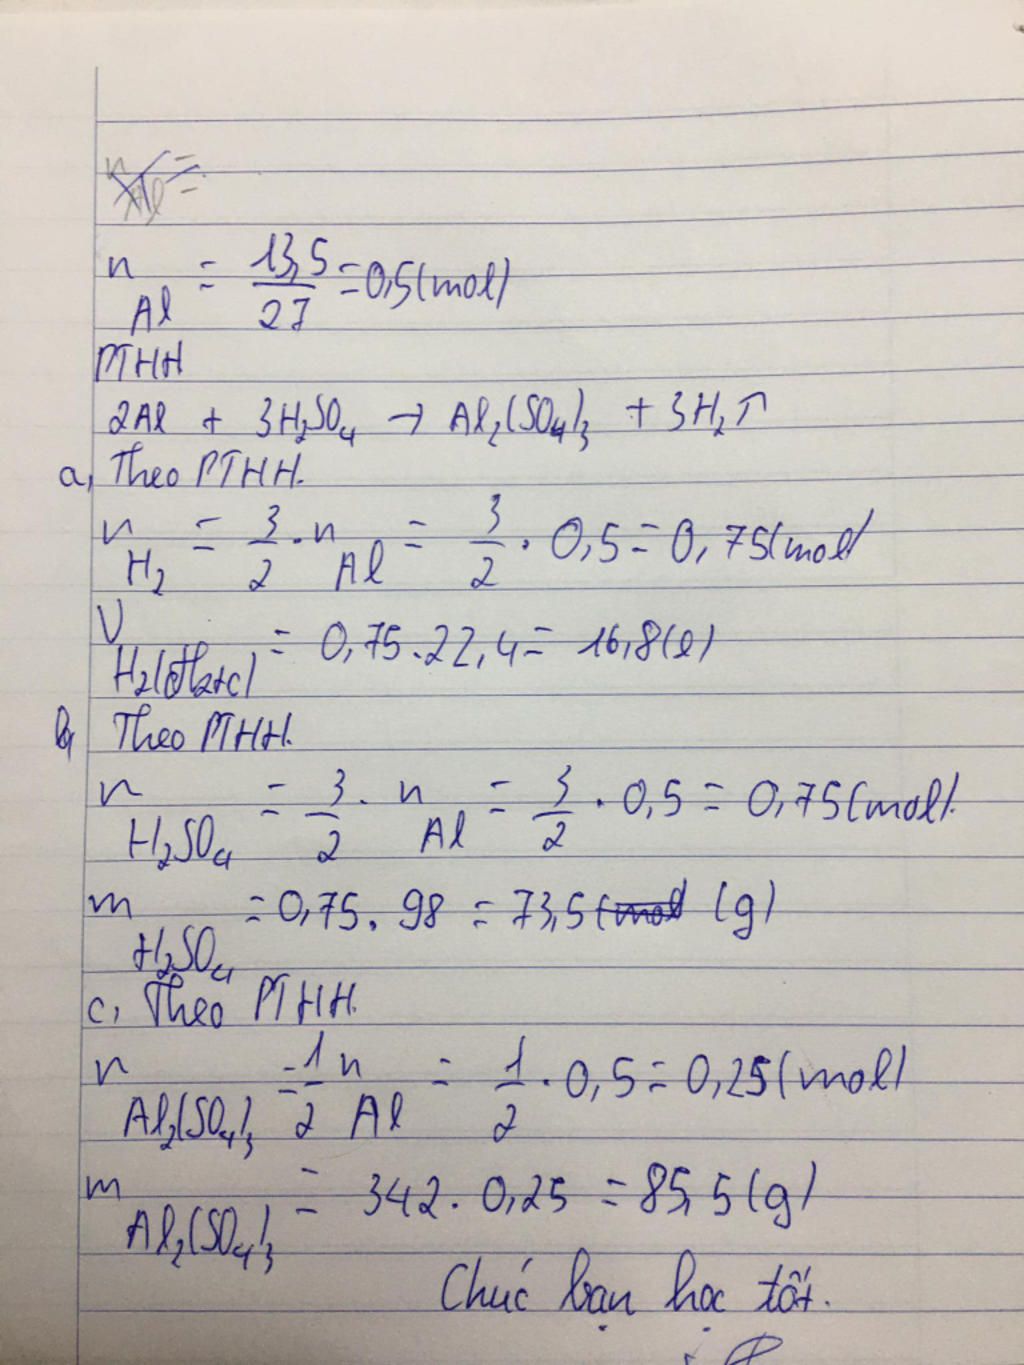 n Al = 13,5/27 = 0,5 (mol)
PTHH
2Al + 3H₂SO₄ → Al₂(SO₄)₃ + 3H₂↑
a, Theo PTHH.
n H₂ = 3/2 . n Al = 3/2 . 0,5 = 0,75 (mol)
V H₂(đktc) = 0,75 . 22,4 = 16,8 (l)
b, Theo PTHH.
n H₂SO₄ = 3/2 . n Al = 3/2 . 0,5 = 0,75 (mol).
m H₂SO₄ = 0,75 . 98 = 73,5 (g)
c, Theo PTHH.
n Al₂(SO₄)₃ = 1/2 n Al = 1/2 . 0,5 = 0,25 (mol)
m Al₂(SO₄)₃ = 342 . 0,25 = 85,5 (g)
Chúc bạn học tốt.